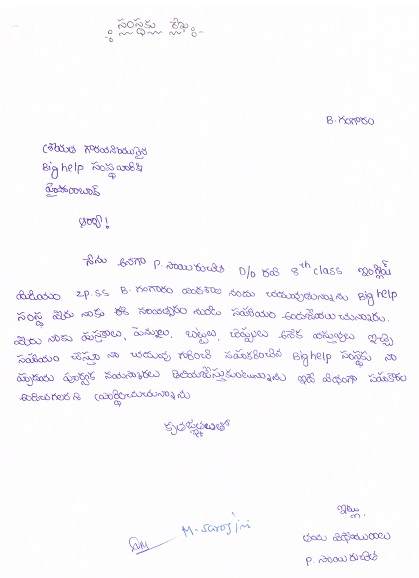 సంస్థకు లేఖ
B. గంగారం
శ్రీయుత గౌరవనీయులైన
Big help సంస్థ వారికి
హైదరాబాద్
ఆర్యా!
నేను అనగా P. సాయి రుచిత D/o రవి 8th class ఇంగ్లీష్
మీడియం z.p.ss B. గంగారం పాఠశాల నందు చదువుతున్నాను Big help
సంస్థ వారు నాకు ఈ సంవత్సరం నుండి సహాయం అందజేయుచున్నారు.
మీరు నాకు పుస్తకాలు, పెన్నులు, బట్టలు, చెప్పులు అనేక వస్తువులు ఇచ్చి
సహాయం చేస్తూ నా చదువు గురించి సహకరించిన Big help సంస్థకు నా
హృదయ పూర్వక నమస్కారాలు తెలియజేస్తుకుంటున్నాను ఇదే విధంగా సహకారం
అందించగలరని ప్రార్థించుచున్నాను
కృతజ్ఞతలతో
ఇట్లు,
తమ విధేయురాలు
P. సాయి రుచిత
M. Saroj ini